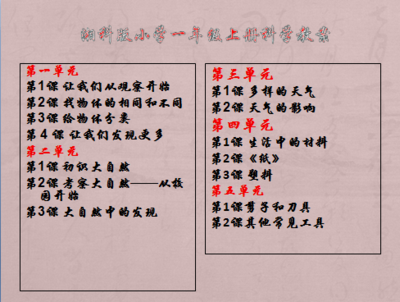 湘科版小学一年级上册科学教案
第一单元
第1课 让我们从观察开始
第2课 找物体的相同和不同
第3课 给物体分类
第 4 课 让我们发现更多
第二单元
第1课 初识大自然
第2课 考察大自然——从校
园开始
第3课 大自然中的发现
第三单元
第1课 多样的天气
第2课 天气的影响
第四单元
第1课 生活中的材料
第2课 《纸》
第3课 塑料
第五单元
第1课 剪子和刀具
第2课 其他常见工具